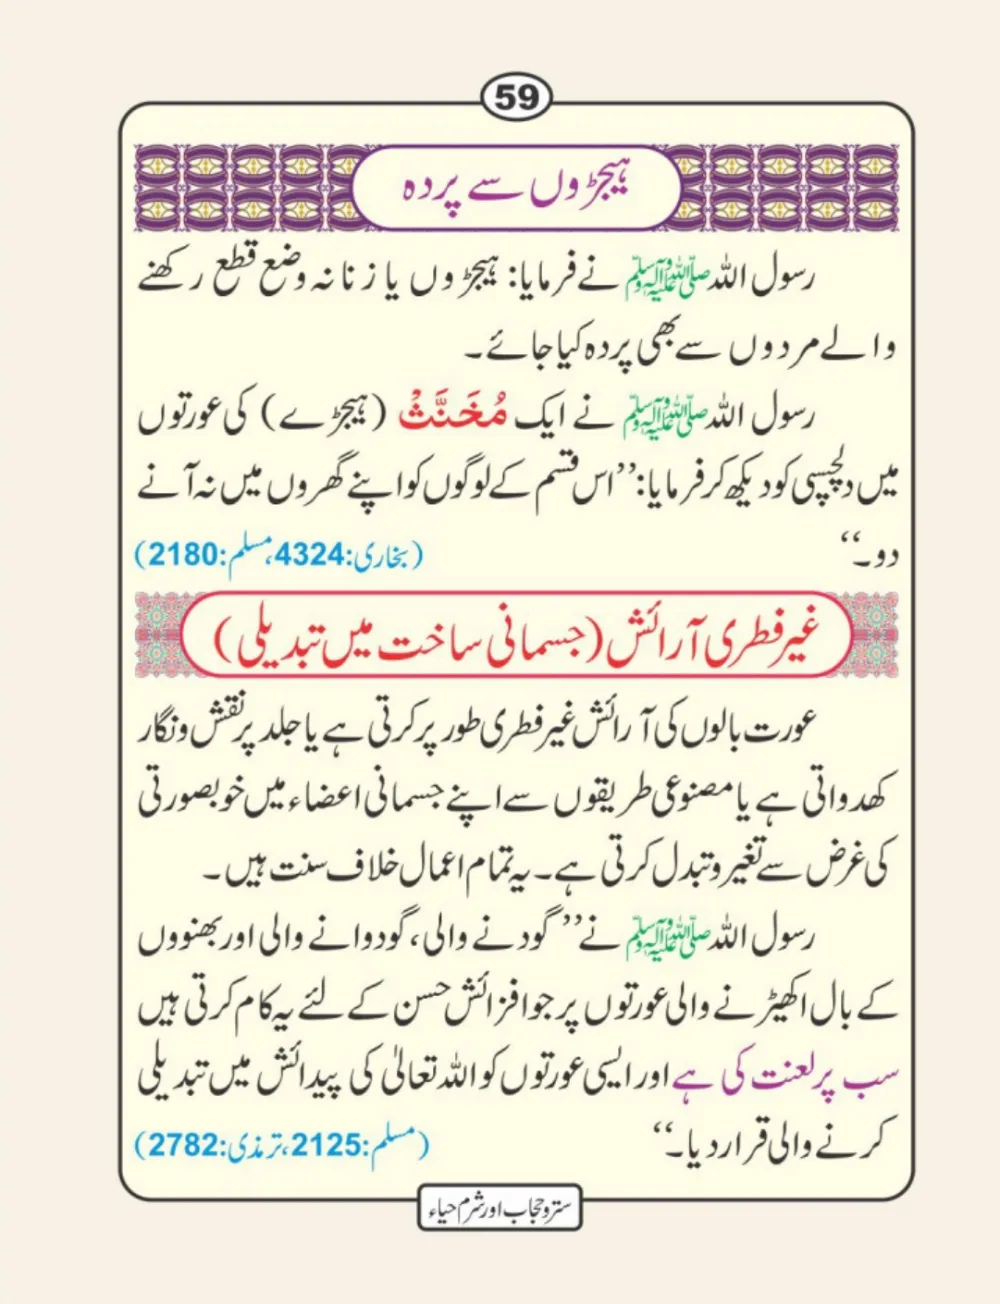 59
ہیجڑوں سے پردہ
رسول اللہ ﷺ نے فرمایا: ہیجڑوں یا زنانہ وضع قطع رکھنے
والے مردوں سے بھی پردہ کیا جائے۔
رسول اللہ ﷺ نے ایک مُخَنَّثْ (ہیجڑے) کی عورتوں
میں دلچسپی کو دیکھ کر فرمایا: ’’اس قسم کے لوگوں کو اپنے گھروں میں نہ آنے
دو۔‘‘ (بخاری:4324، مسلم:2180)
غیر فطری آرائش (جسمانی ساخت میں تبدیلی)
عورت بالوں کی آرائش غیر فطری طور پر کرتی ہے یا جلد پر نقش و نگار
کھدواتی ہے یا مصنوعی طریقوں سے اپنے جسمانی اعضاء میں خوبصورتی
کی غرض سے تغیر و تبدل کرتی ہے۔ یہ تمام اعمال خلاف سنت ہیں۔
رسول اللہ ﷺ نے ’’گودنے والی، گودوانے والی اور بھنووں
کے بال اکھیڑنے والی عورتوں پر جو افزائش حسن کے لئے یہ کام کرتی ہیں
سب پر لعنت کی ہے اور ایسی عورتوں کو اللہ تعالیٰ کی پیدائش میں تبدیلی
کرنے والی قرار دیا۔‘‘ (مسلم:2125، ترمذی:2782)
ستر و حجاب اور شرم حیاء